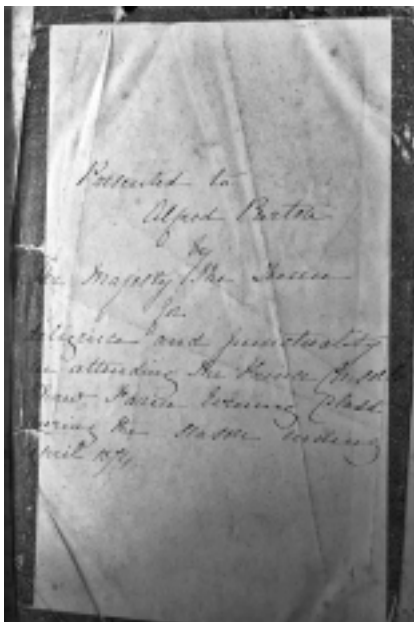 Presented to
Alfred Burton
by
Her Majesty the Queen
for
diligence and punctuality
in attending the
Evening Class
during the season ending
April